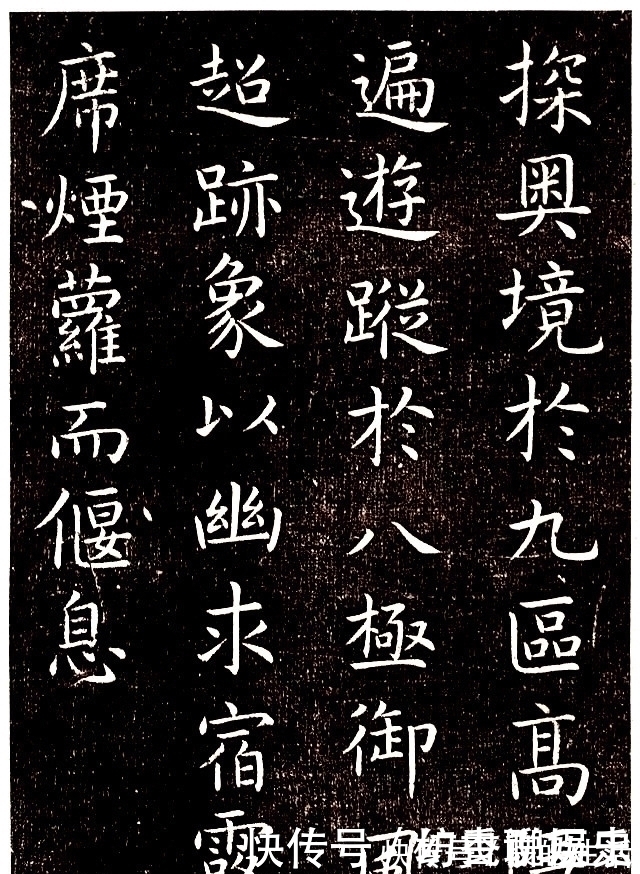 探奥境於九區高
遍遊蹤於八極御
超跡象以幽求宿霞
席煙蘿而偃息
快传号